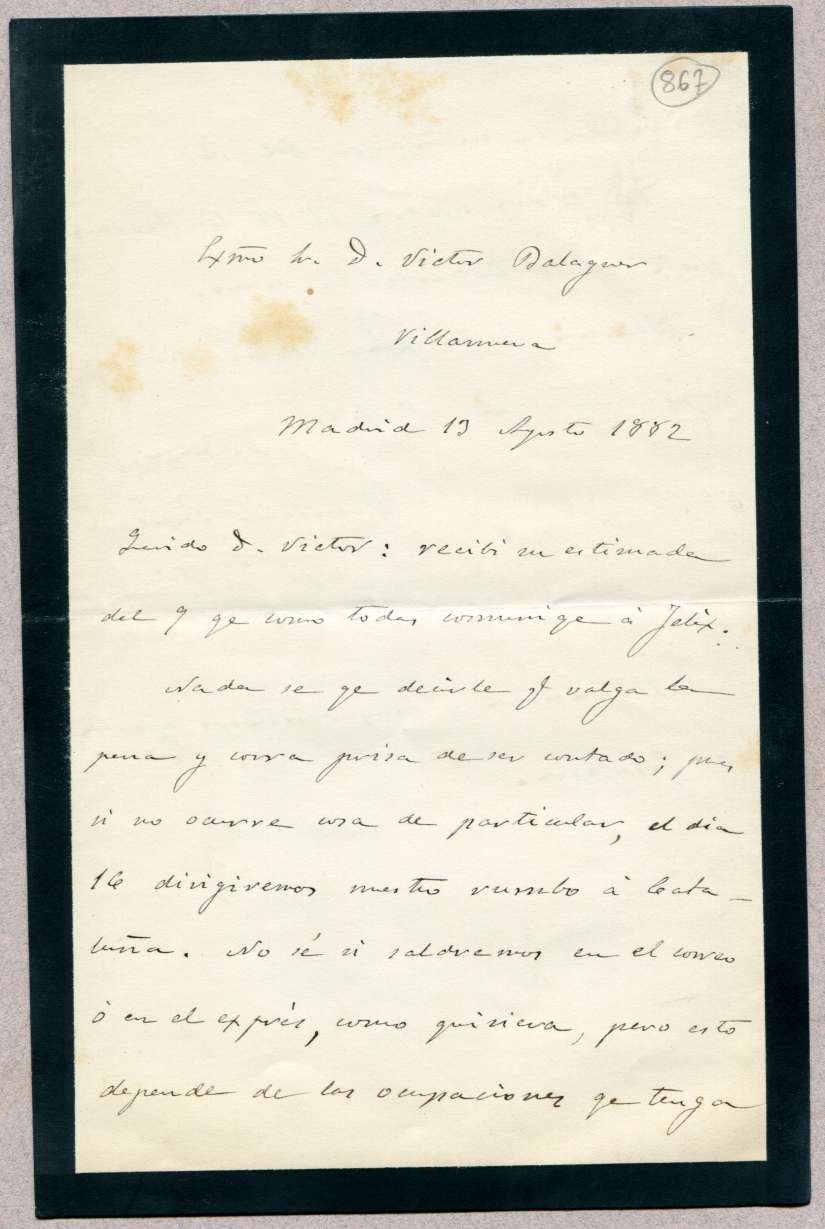 867
Exmo Sr. D. Victor Balaguer
Villanueva
Madrid 13 Agosto 1882
Querido D. Victor: recibi su estimada
del 9 qe como todas comuniqe à Felix.
Nada se qe decirle qe valga la
pena y corra prisa de ser contado; pues
si no ocurre cosa de particular, el dia
16 dirigiremos nuestro rumbo à Cata-
luña. No sé si saldremos en el correo
ò en el exprés, como quisiera, pero esto
depende de las ocupaciones qe tenga